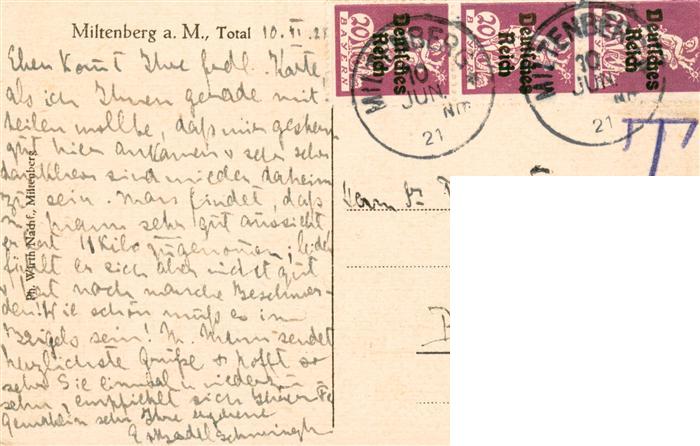 Miltenberg a. M., Total 10. VI. 21
Eben kommt Ihre frdl. Karte,
als ich Ihnen gerade mit-
teilen wollte, daß wir gestern
gut hier ankamen u. sehr
dankbar sind wieder daheim
zu sein. Man findet, daß
m. Mann sehr gut aussieht
er hat 11 Kilo zugenommen, leider
fühlt er sich aber nicht gut
u. hat noch manche Beschwer-
den! Wie schön muß es in
Brigels sein! M. Mann sendet
herzlichste Grüße u. hofft so
sehr Sie einmal wieder zu
sehen, empfiehlt sich Ihrer
Gemahlin sehr Ihre ergebene
Ph. Wirth Nachf., Miltenberg
20 BAYERN Deutsches Reich
20 BAYERN Deutsches Reich
Deutsches Reich
MILTENBERG
10. JUN. Nm
21
MILTENBERG
10 JUN. Nm
21
T
Herrn Dr